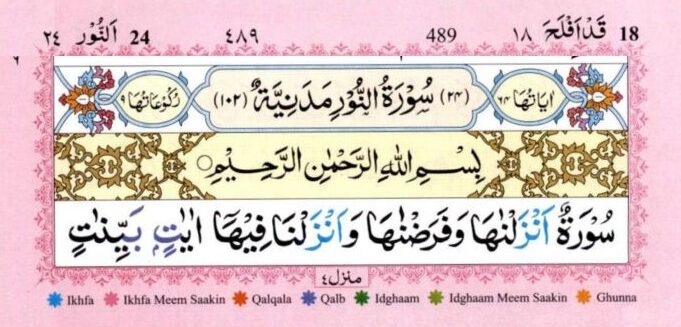 18 قَدْ اَفْلَحَ ١٨ 489 ٤٨٩ 24 اَلنُّوْر ٢٤
اٰيَاتُهَا ٦٤ (٢٤) سُوْرَةُ النُّوْرِ مَدَنِيَّةٌ (١٠٢) رُكُوْعَاتُهَا ٩
بِسْمِ اللهِ الرَّحْمٰنِ الرَّحِيْمِ
سُوْرَةٌ اَنْزَلْنٰهَا وَفَرَضْنٰهَا وَاَنْزَلْنَا فِيْهَاۤ اٰيٰتٍۭ بَيِّنٰتٍ
منزل ٤
Ikhfa Ikhfa Meem Saakin Qalqala Qalb Idghaam Idghaam Meem Saakin Ghunna